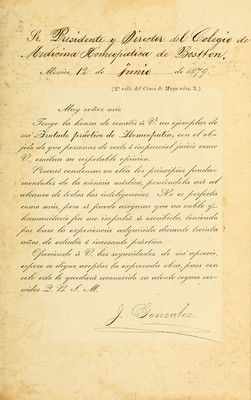 Sr. Presidente y Director del Colegio de
Medicina Homeopática de Bostton.
México, 12 de Junio de 1879.
(2ª calle del Cinco de Mayo núm. 2.)
Muy señor mio
Tengo la honra de remitir á V. un ejemplar de
mi Tratado práctico de Homeopatía, con el ob-
jeto de que personas de recto é imparcial juicio como
V., emitan su respetable opinion.
Procuré condensar en ella los principios funda-
mentales de la ciencia médica, poniéndola así al
alcance de todas las inteligencias. No es perfecta
como mia, pero sí puedo asegurar que un noble y
humanitario fin me impulsó á escribirla, teniendo
por base la experiencia adquirida durante treinta
años de estudio é incesante práctica.
Ofreciendo á V. las seguridades de mi aprecio,
espero se digne aceptar la expresada obra, pues con
solo esto le quedará reconocido su atento seguro ser-
vidor Q. B. S. M.
J. Gonzalez.